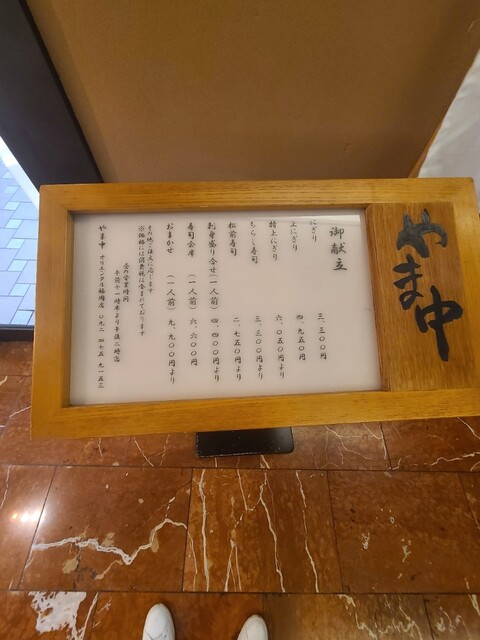 やま中
御献立
にぎり 三、三〇〇円
上にぎり 四、九五〇円
特上にぎり 六、〇五〇円より
ちらし寿司 三、三〇〇円より
松前寿司 二、七五〇円より
刺身盛り合せ（一人前） 四、四〇〇円より
寿司会席（一人前） 六、六〇〇円
おまかせ（一人前） 九、九〇〇円より
その他ご注文に応じます
※価格には消費税は含まれております
昼の営業時間
午前十一時半より午後二時迄
やま中 オリエンタル福岡店 〇九二 四七五 九一五三